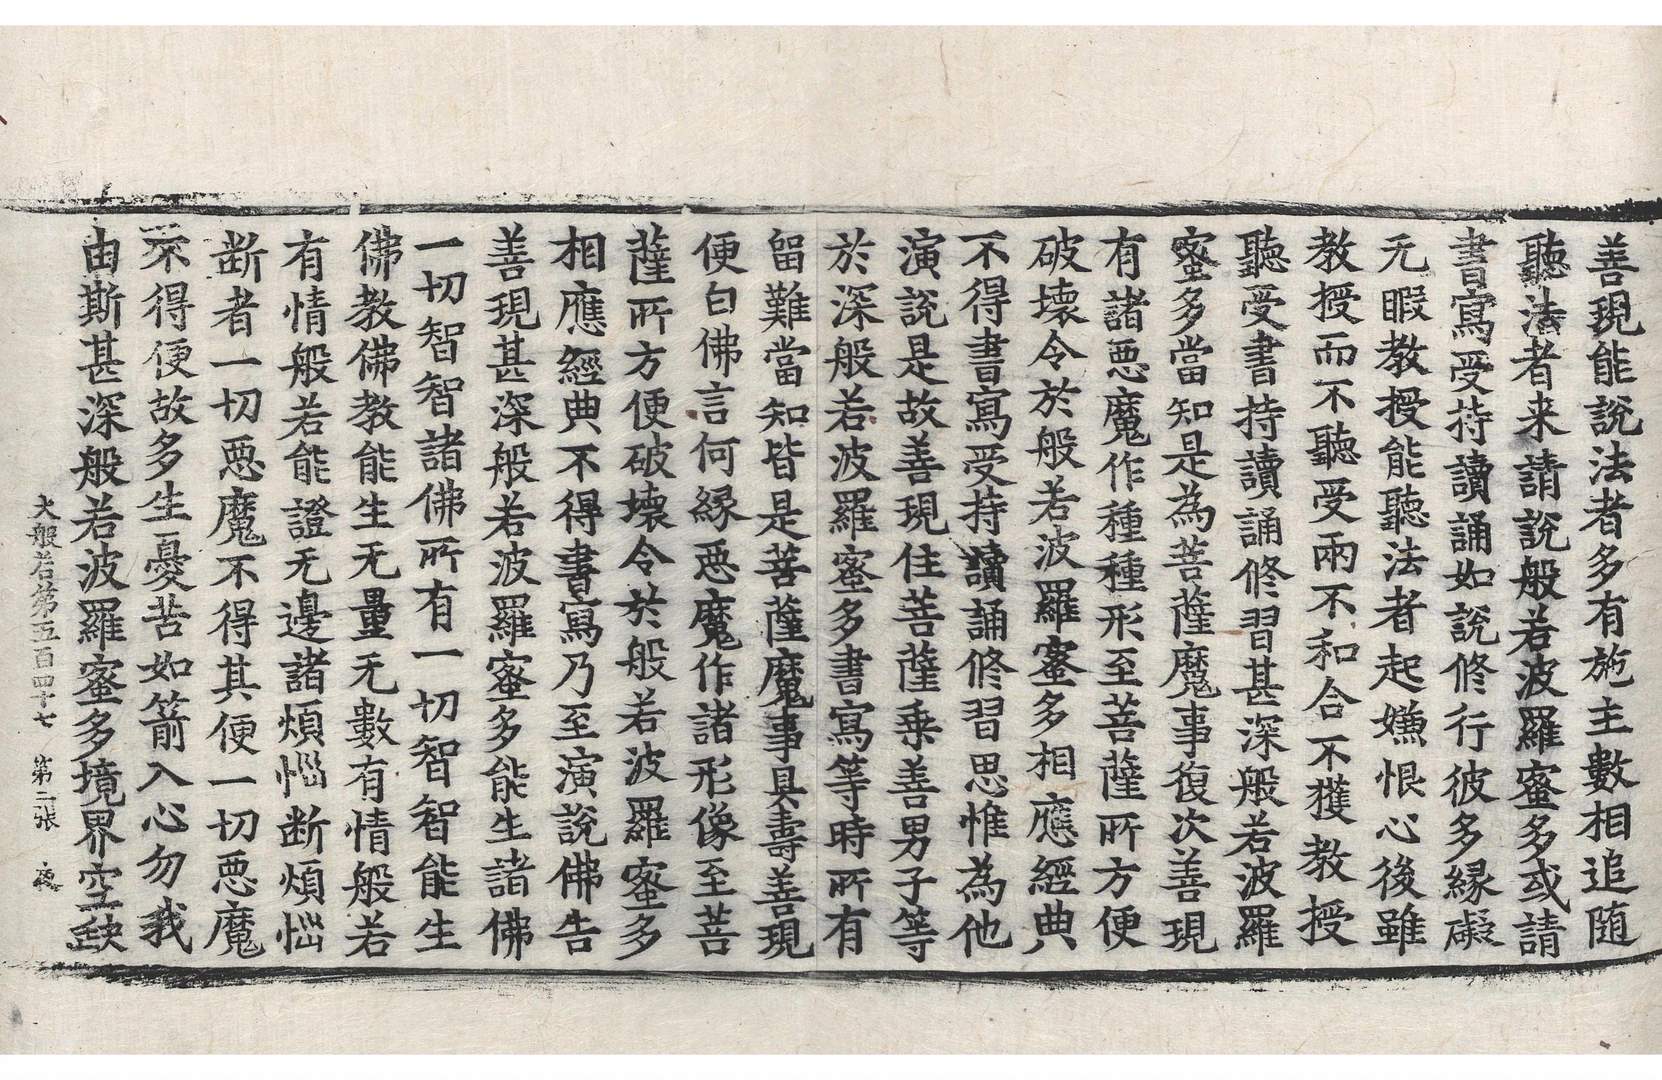 善現能說法者多有施主數相追随
聽法者来請說般若波羅蜜多或請
書寫受持讀誦如說修行彼多緣礙
无暇教授能聽法者起嫌恨心後雖
教授而不聽受兩不和合不獲教授
聽受書持讀誦修習甚深般若波羅
蜜多當知是為菩薩魔事復次善現
有諸惡魔作種種形至菩薩所方便
破壞令於般若波羅蜜多相應經典
不得書寫受持讀誦修習思惟為他
演說是故善現住菩薩乗善男子等
於深般若波羅蜜多書寫等時所有
留難當知皆是菩薩魔事具壽善現
便白佛言何緣惡魔作諸形像至菩
薩所方便破壞令於般若波羅蜜多
相應經典不得書寫乃至演說佛告
善現甚深般若波羅蜜多能生諸佛
一切智智諸佛所有一切智智能生
佛教佛教能生无量无數有情般若
有情般若能證无邊諸煩惱断煩惱
断者一切惡魔不得其便一切惡魔
不得便故多生憂苦如箭入心勿我
由斯甚深般若波羅蜜多境界空缺
大般若第五百四十七 第二張 夜